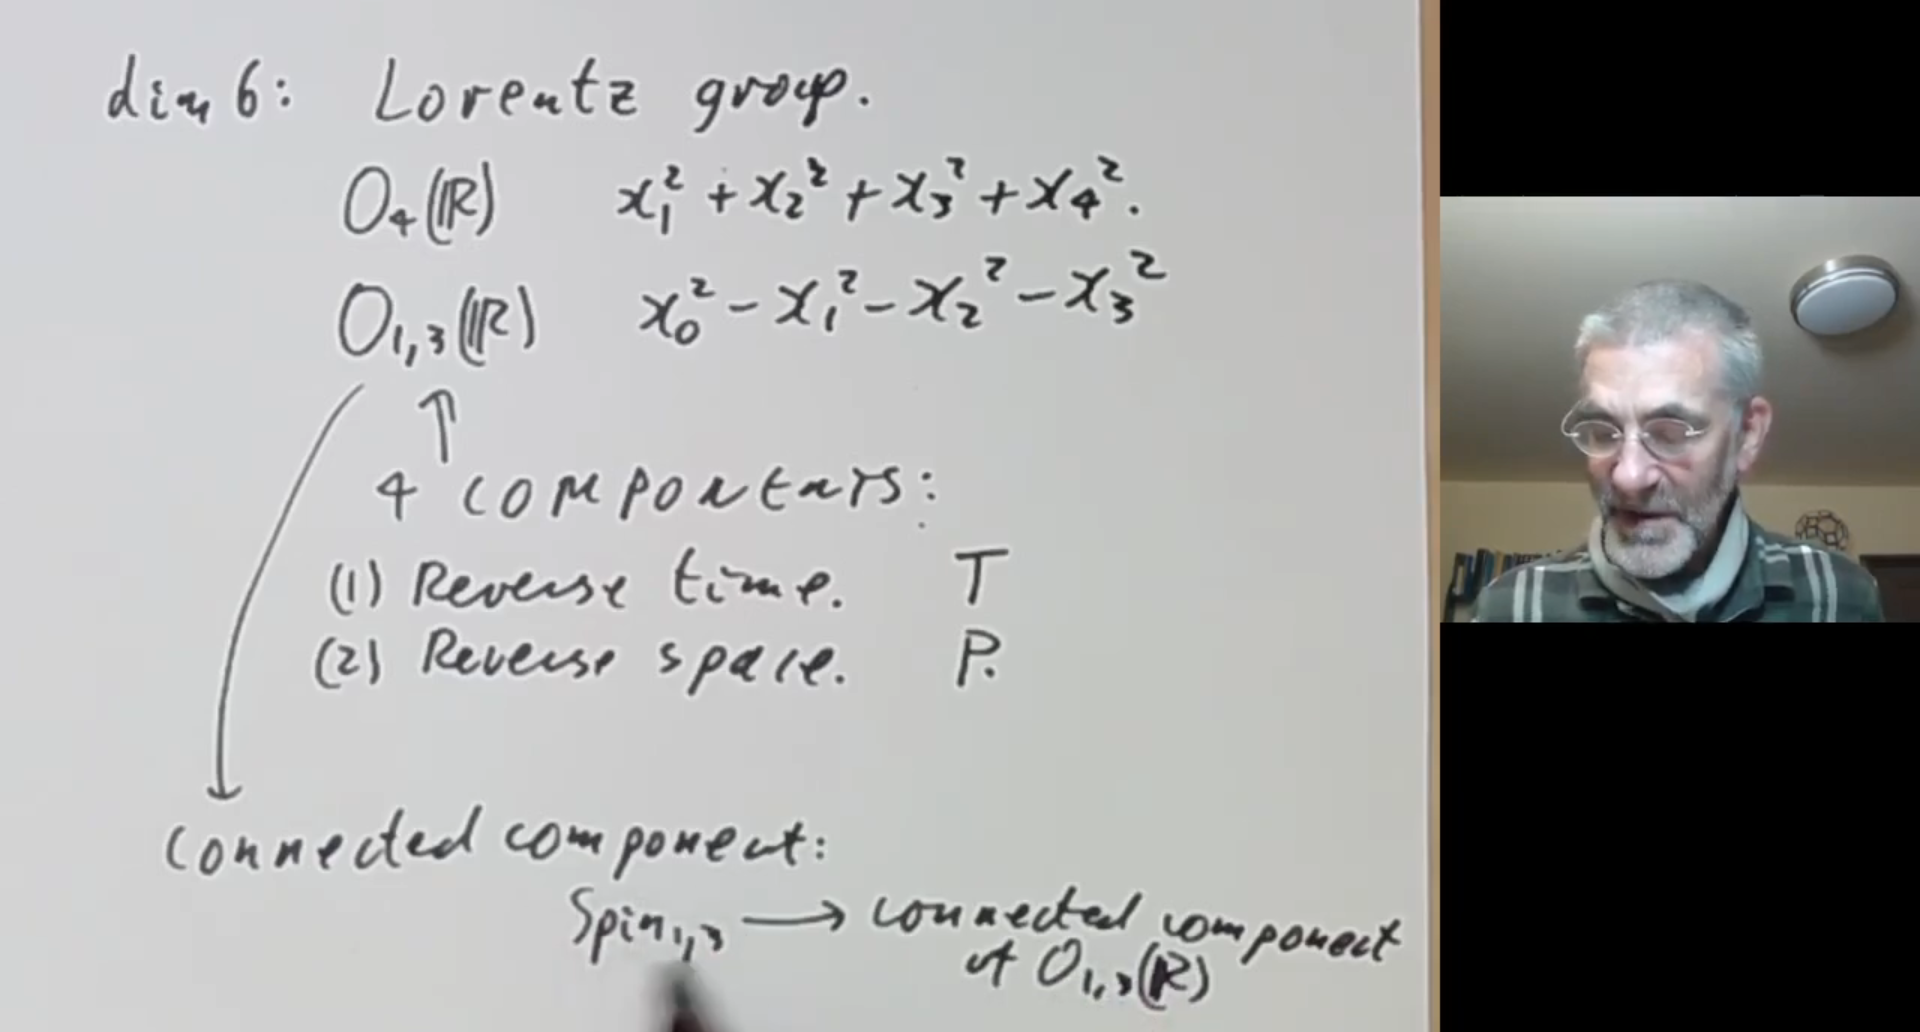 dim 6: Lorentz group.
O₄(ℝ) x₁² + x₂² + x₃² + x₄².
O₁,₃(ℝ) x₀² - x₁² - x₂² - x₃²
4 components:
(1) Reverse time. T
(2) Reverse space. P.
connected component:
Spin₁,₃ → connected component
of O₁,₃(ℝ)